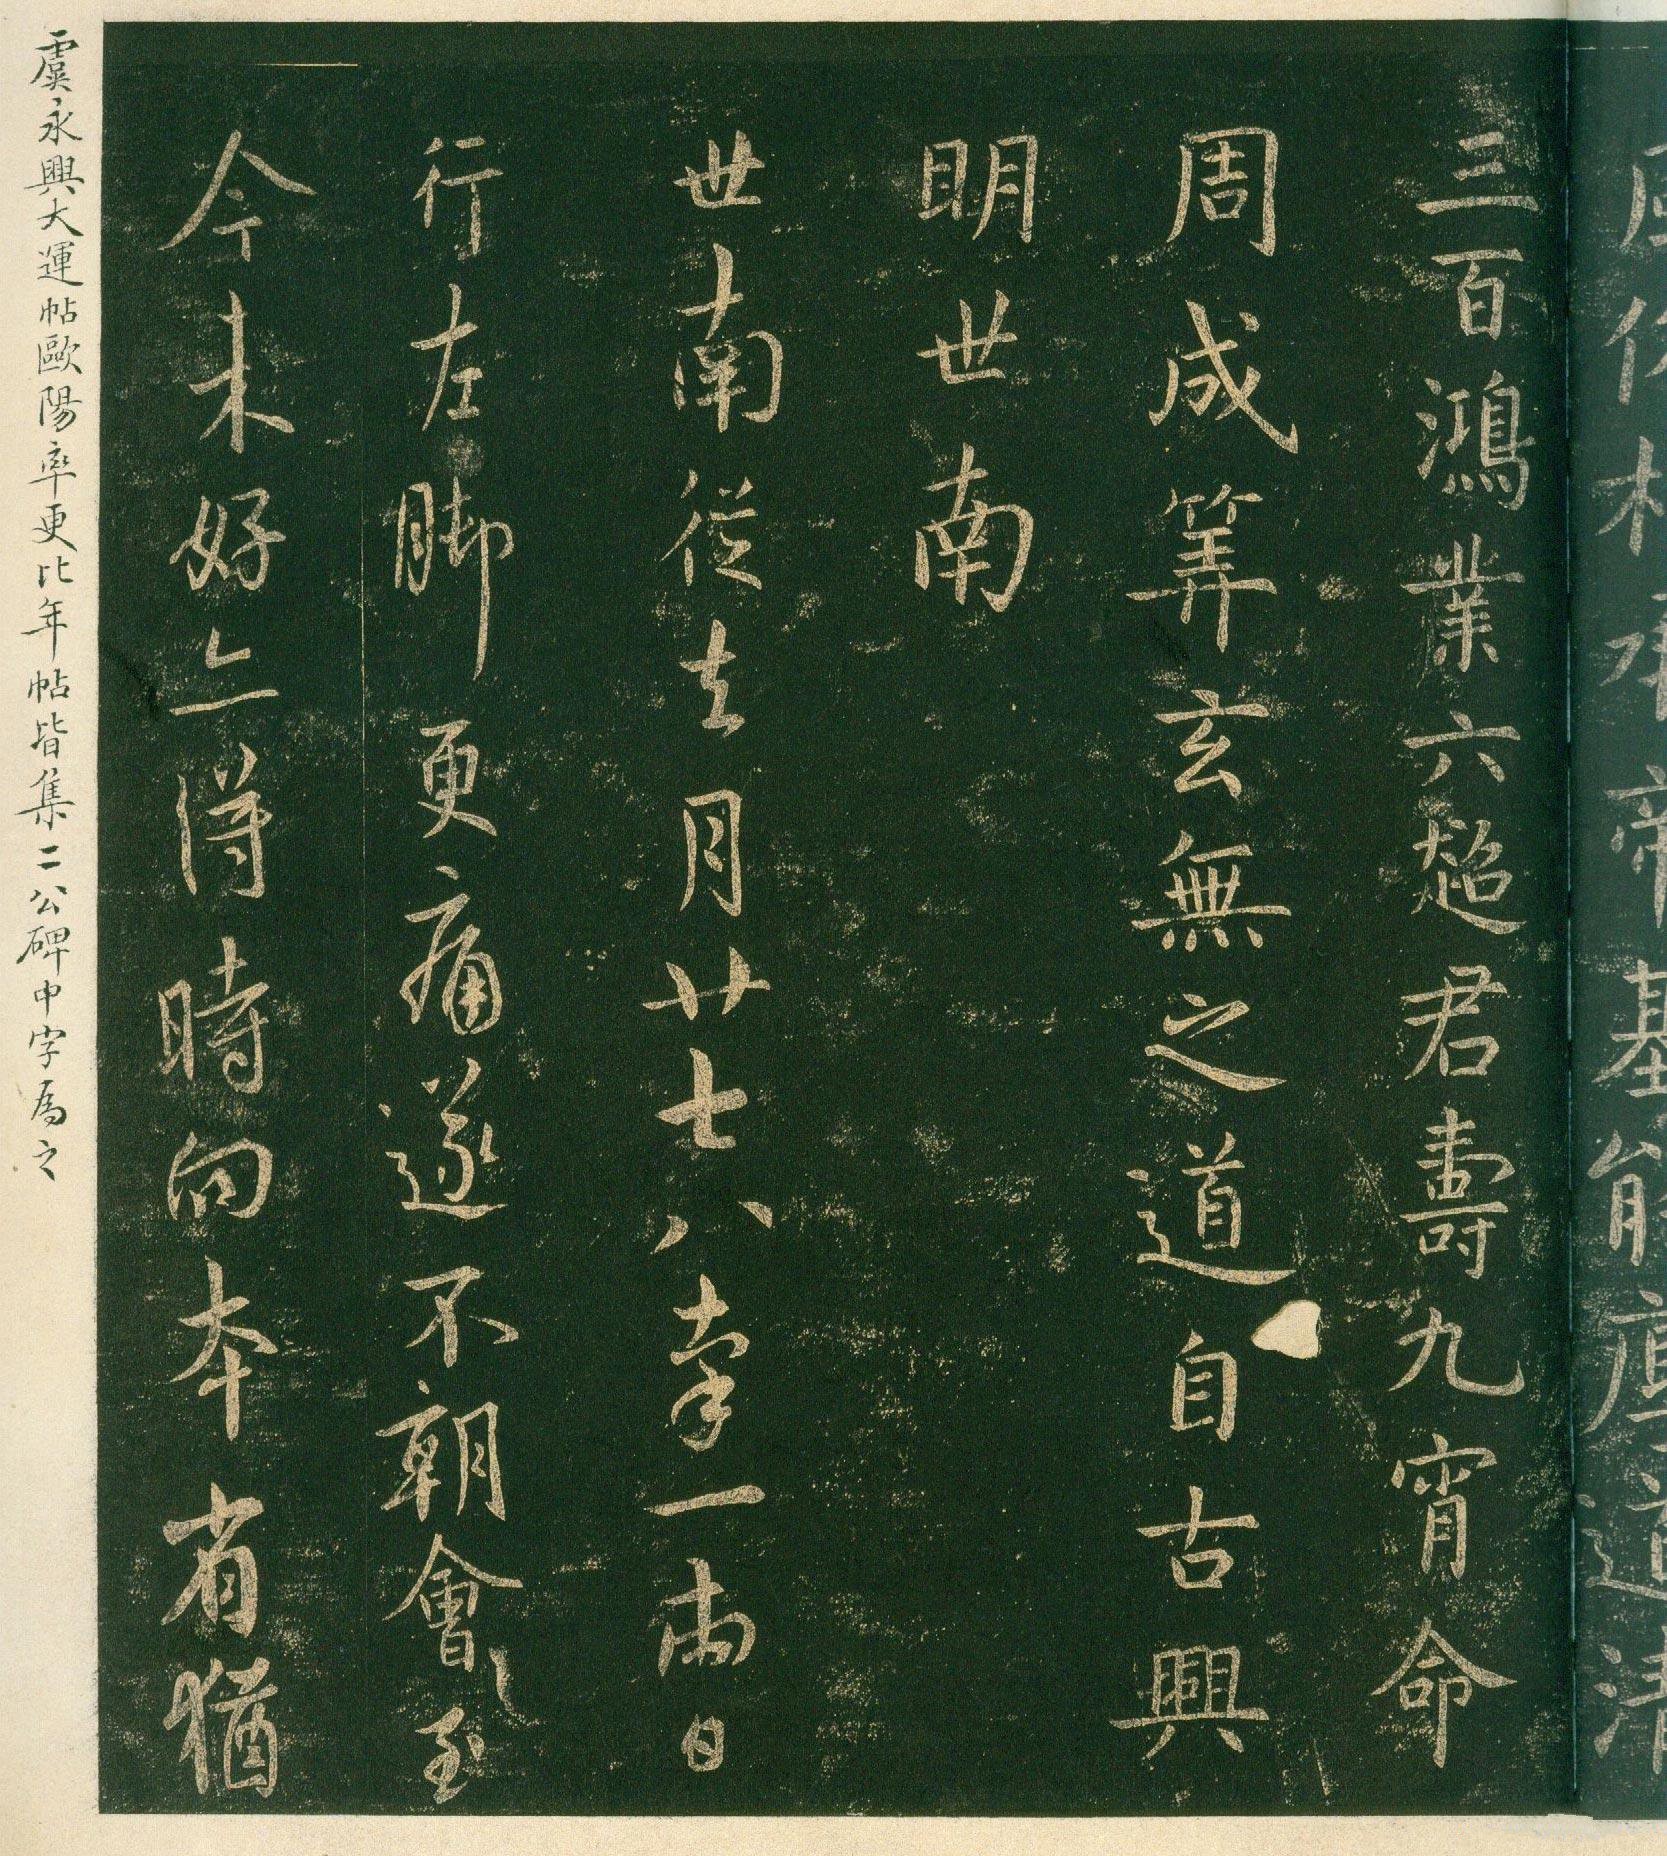 三百鴻業六超君壽九宵命
周成筭玄無之道自古興
明世南
世南從去月廿七八率一兩日
行左脚更痛遂不朝會至
今未好亦得時向本省猶
虞永興大運帖歐陽率更比年帖皆集二公碑中字為之